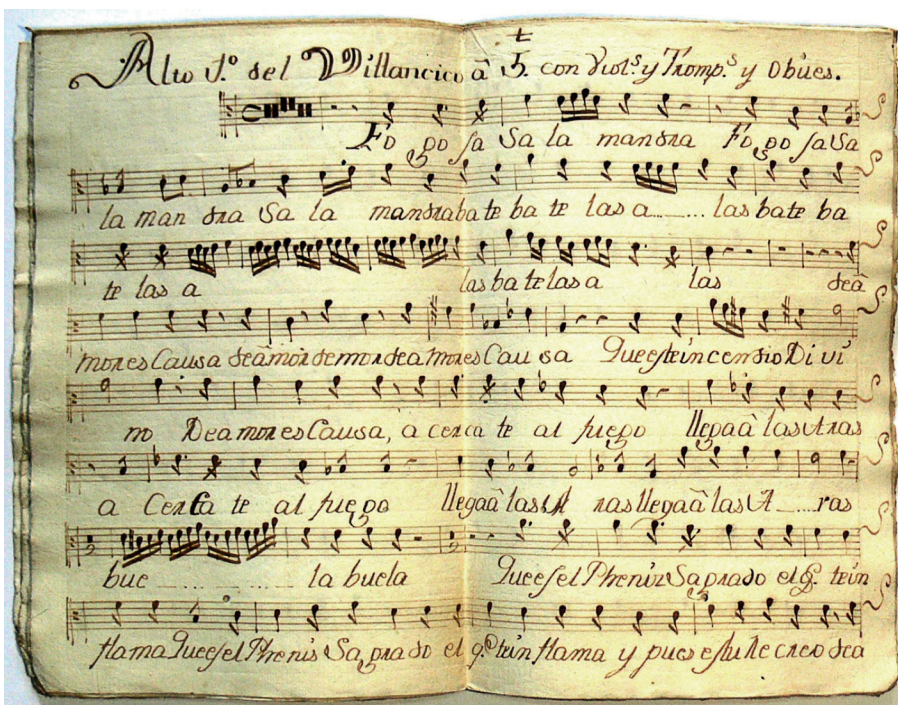 Alto 1.º del Villancico â 5. con Viol.s y Tromp.s y Obúes.
Fo go sa Sa la mandra Fo go sa Sa
la man dra Sa la mandra ba te ba te las a las ba te ba
te las a las ba te las a las deâ
mores Causa deâmor de mor dea mores Cau sa Que este incendio Di vi
no De amores Causa, a cerca te al fuego llegaâ las Aras
a Cerca te al fuego llegaâ las A ras llegaâ las A ras
bue la buela Que es el Phenix Sagrado el q.e te in
flama Que es el Phenis Sa grado el q.e te in flama y pues dea